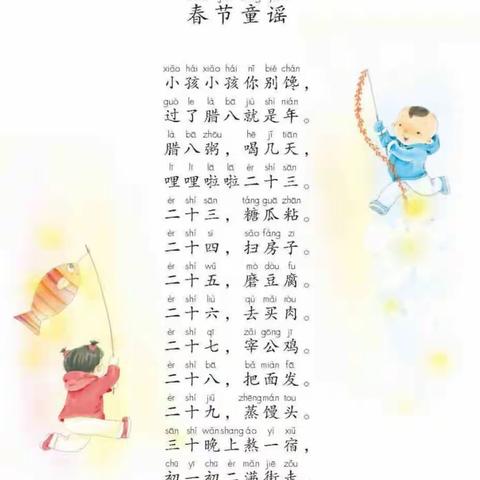 春节童谣
xiǎo hái xiǎo hái nǐ bié chán
小孩小孩你别馋，
guò le là bā jiù shì nián
过了腊八就是年。
là bā zhōu hē jǐ tiān
腊八粥，喝几天，
lī lī lā lā èr shí sān
哩哩啦啦二十三。
èr shí sān táng guā zhān
二十三，糖瓜粘。
èr shí sì sǎo fáng zi
二十四，扫房子。
èr shí wǔ mò dòu fu
二十五，磨豆腐。
èr shí liù qù mǎi ròu
二十六，去买肉。
èr shí qī zǎi gōng jī
二十七，宰公鸡。
èr shí bā bǎ miàn fā
二十八，把面发。
èr shí jiǔ zhēng mán tou
二十九，蒸馒头。
sān shí wǎn shang áo yì xiǔ
三十晚上熬一宿，
chū yī chū èr mǎn jiē zǒu
初一初二满街走